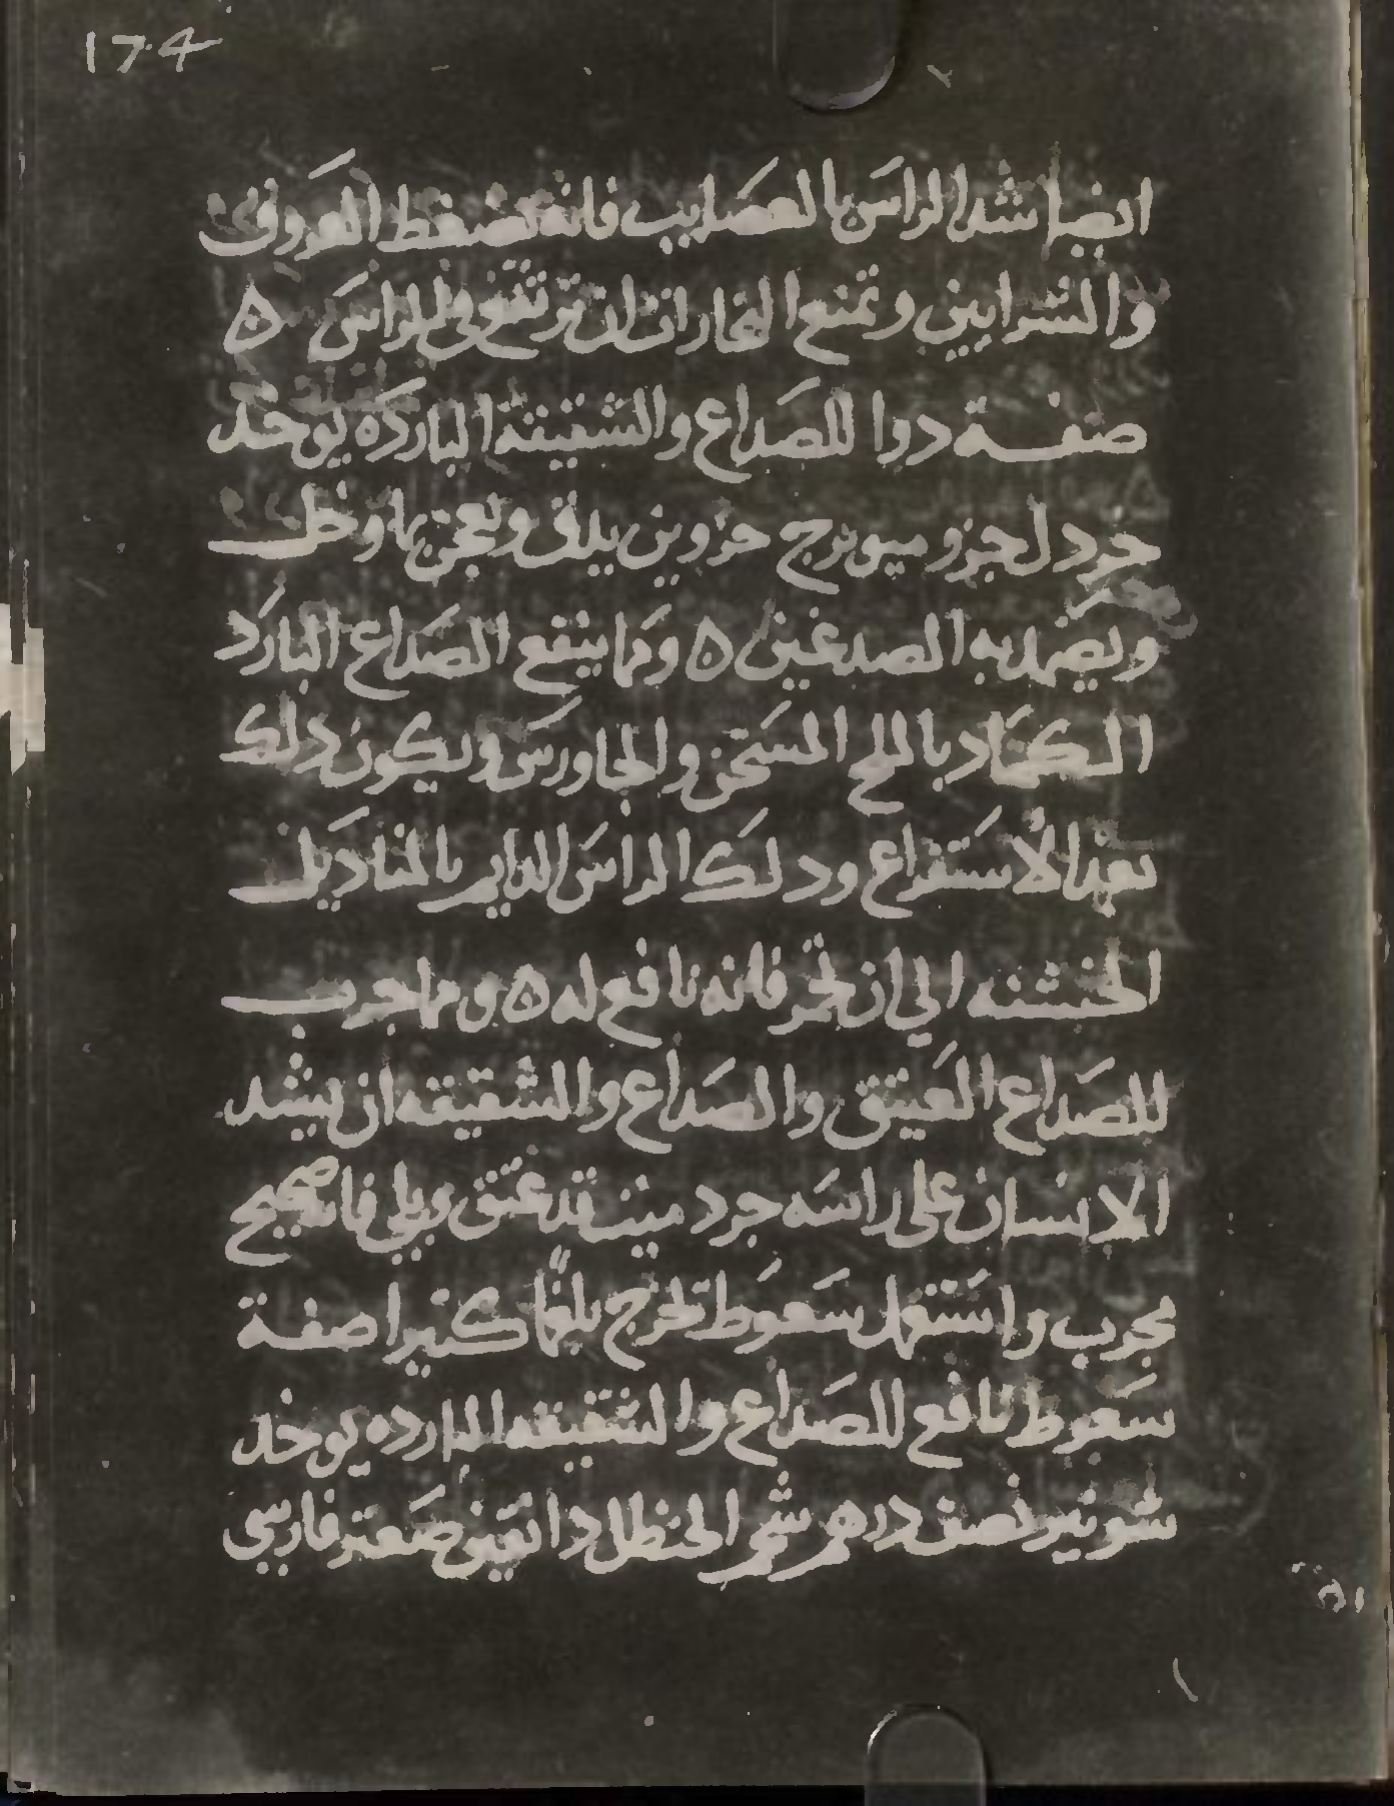 174
ايضا شد الراس بالعصايب فانه تضغط العروق
والشرايين وتمنع البخارات ان ترتقي في الراس ه
صفة دوا للصداع والشقيقة البارده يوخد
خردل جزو ميويزج جزوين يدق ويعجن بماوخل
ويضمد به الصدغين ه ومما ينفع الصداع البارد
الكماد بالملح المسخن والجاورس ويكون دلك
بعد الاستفراغ ودلك الراس الدايم بالمناديل
الخشنه الي ان تحمر فانه نافع له ه ومما جرب
للصداع العتيق والصداع والشقيقه ان يشد
الانسان على راسه جرد ميت قد عتق وبلي فانه صحيح
مجرب واستعمل سعوط تخرج بلغما كثيرا صفة
سعوط نافع للصداع والشقيقه البارده يوخد
شونيز نصف درهم شحم الحنظل دانقين صعتر فارسي